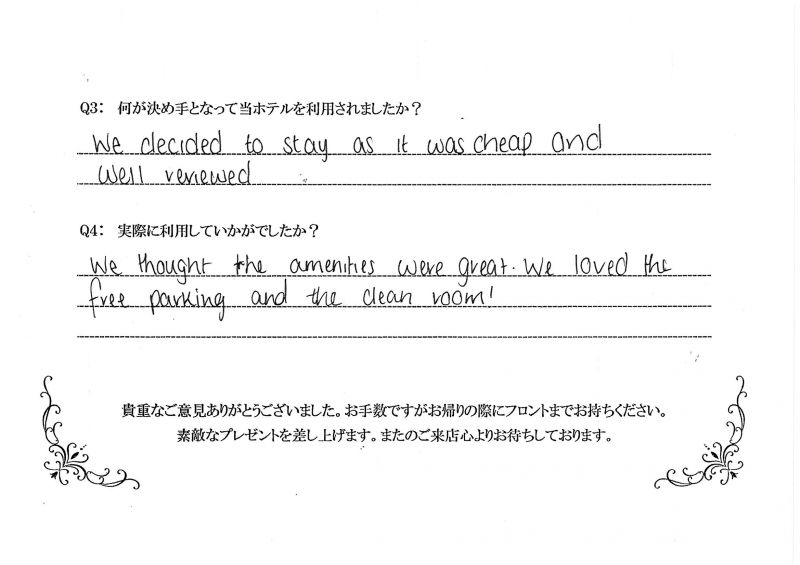 Q3： 何が決め手となって当ホテルを利用されましたか？
We decided to stay as it was cheap and
well reviewed
Q4： 実際に利用していかがでしたか？
We thought the amenities were great. We loved the
free parking and the clean room!
貴重なご意見ありがとうございました。お手数ですがお帰りの際にフロントまでお持ちください。
素敵なプレゼントを差し上げます。またのご来店心よりお待ちしております。